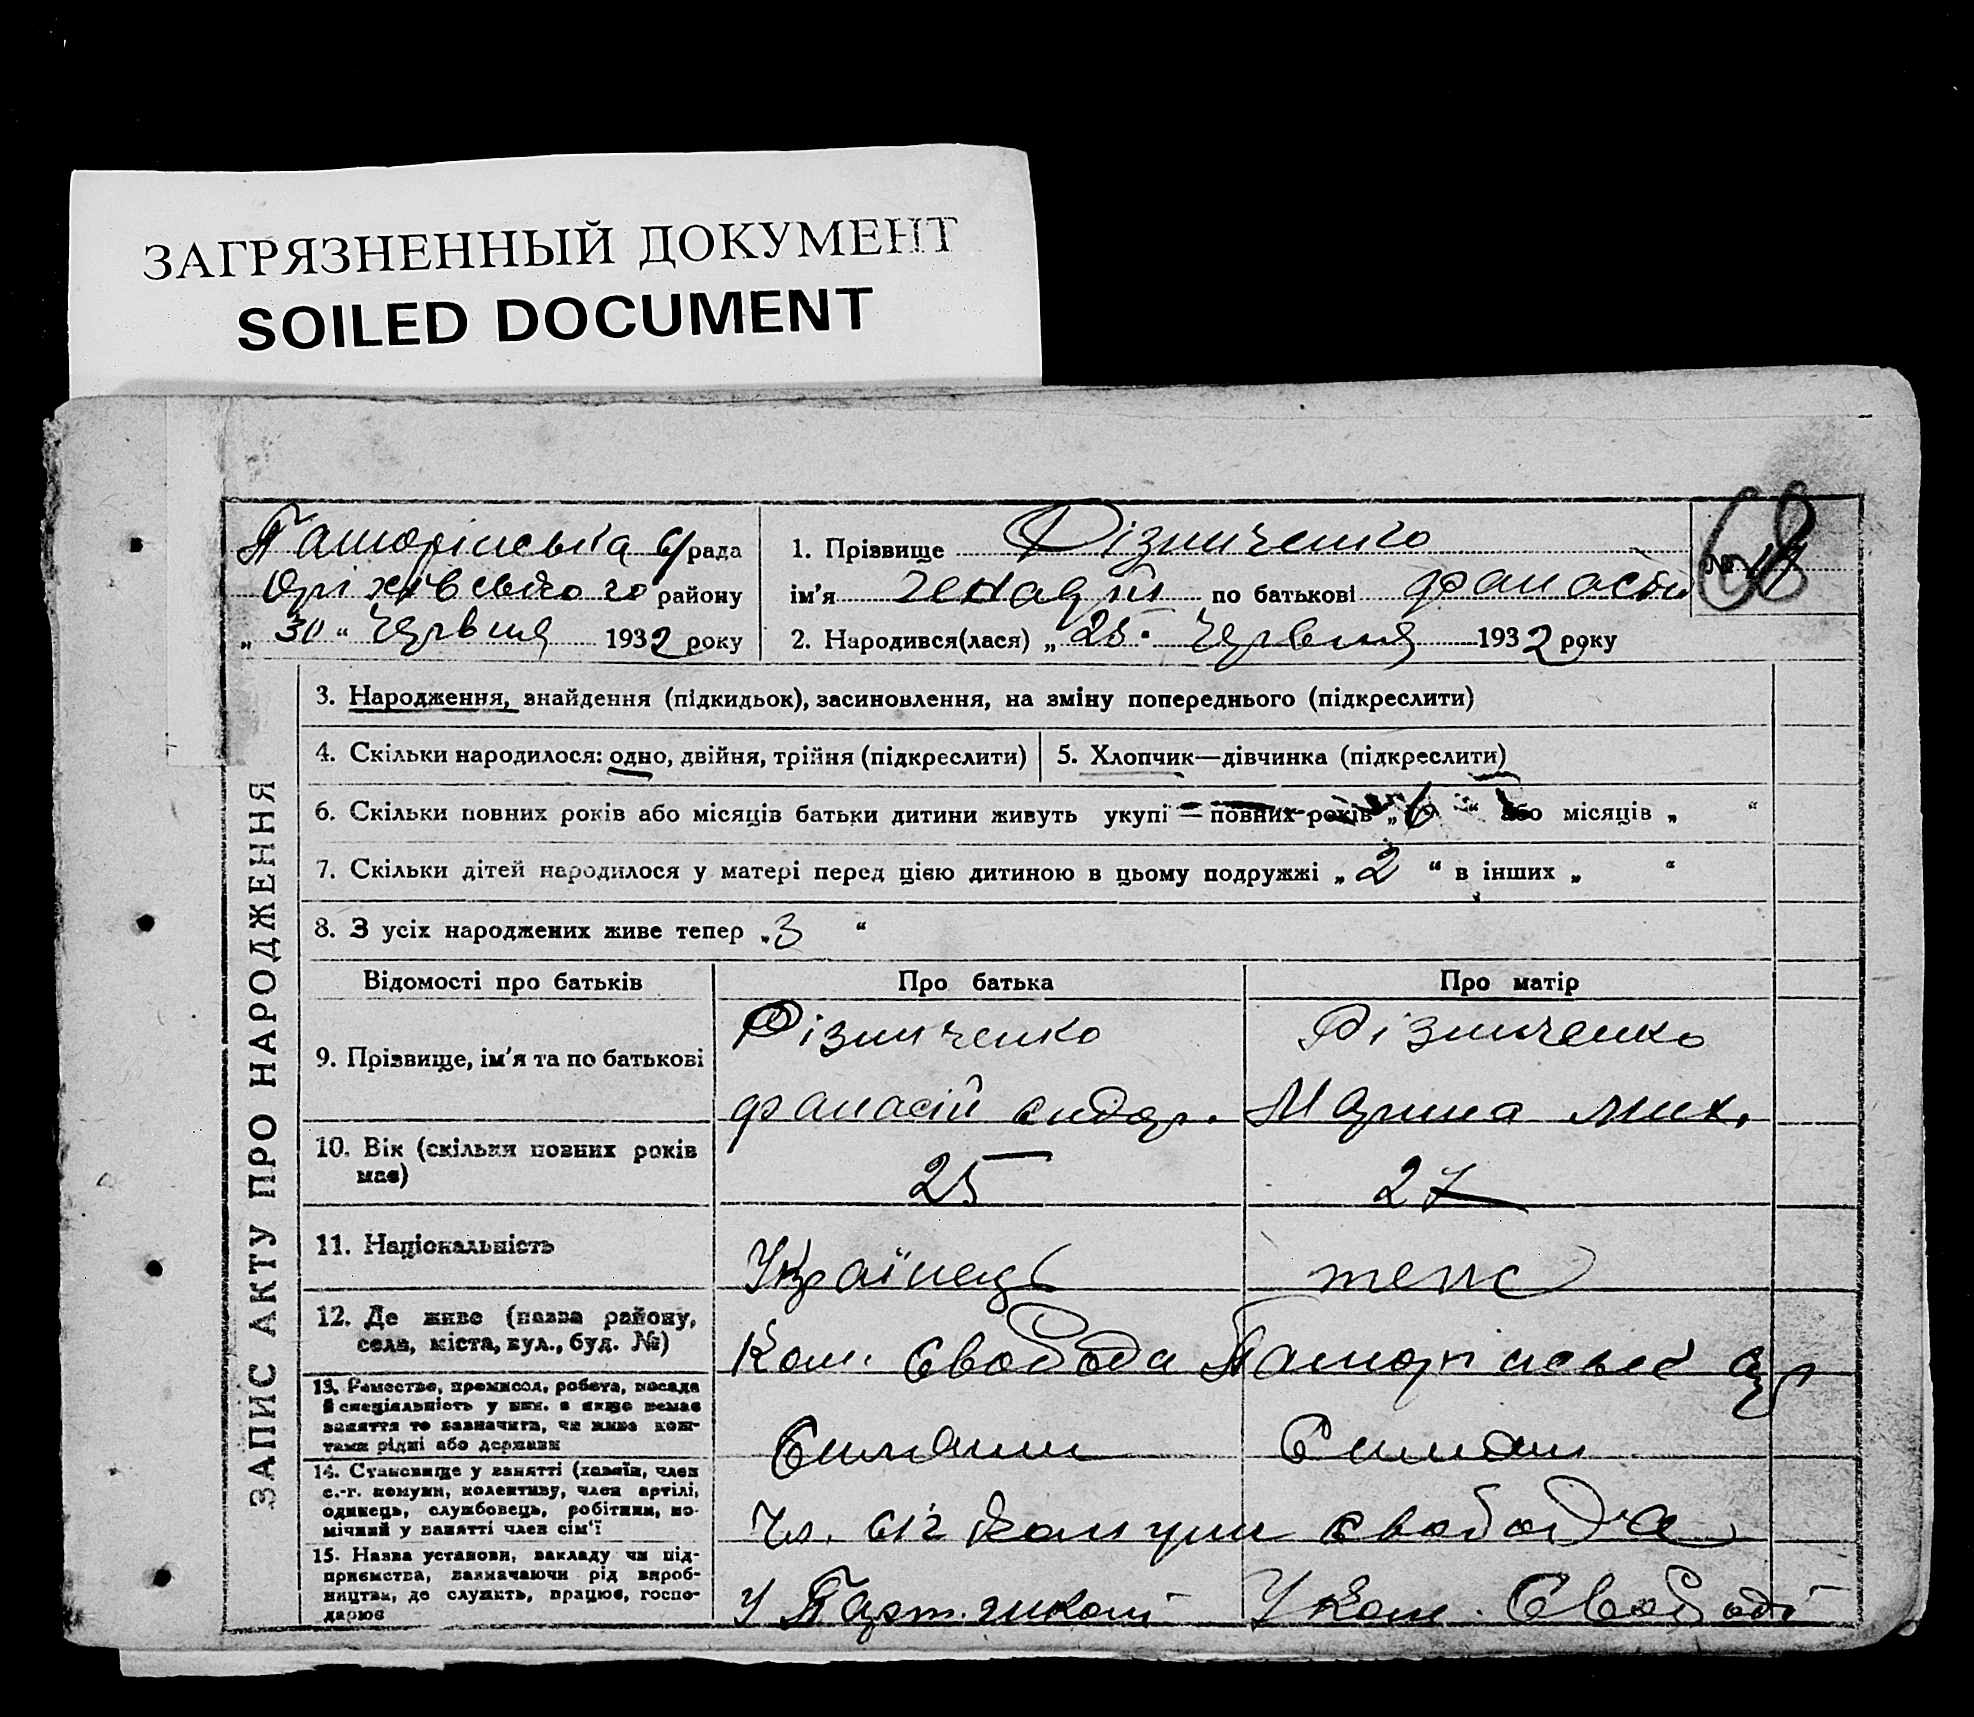 ЗАГРЯЗНЕННЫЙ ДОКУМЕНТ
SOILED DOCUMENT
рада
Оріхівського району
„ 30 “ Червня 1932 року
1. Прізвище Різниченко
ім'я Генадій по батькові Фанасів
2. Народився(лася) „ 25 “ Червня 1932 року
№
68
ЗАПИС АКТУ ПРО НАРОДЖЕННЯ
3. Народження, знайдення (підкидьок), засиновлення, на зміну попереднього (підкреслити)
4. Скільки народилося: одно, двійня, трійня (підкреслити)
5. Хлопчик—дівчинка (підкреслити)
6. Скільки повних років або місяців батьки дитини живуть укупі — повних років „ 6 “ або місяців „ “
7. Скільки дітей народилося у матері перед цією дитиною в цьому подружжі „ 2 “ в інших „ “
8. З усіх народжених живе тепер „ 3 “
Відомості про батьків Про батька Про матір
9. Прізвище, ім'я та по батькові
Різниченко Різниченко
Фанасій Сидор. Марина Мих.
10. Вік (скільки повних років має)
25 27
11. Національність
Українець теж
12. Де живе (назва району, села, міста, вул., буд. №)
Ком. Свобода
13. Ремество, промисел, робота, посада й спеціяльність у ній, а якщо немає заняття то зазначити, чи живе коштами рідні або держави
14. Становище у занятті (хазяїн, член с.-г. комуни, колективу, член артілі, одинець, службовець, робітник, помічний у занятті член сім'ї
Чл. с/г комуни свобода
15. Назва установи, закладу чи підприємства, зазначаючи рід виробництва, де служить, працює, господарює
У У Ком. Свободі